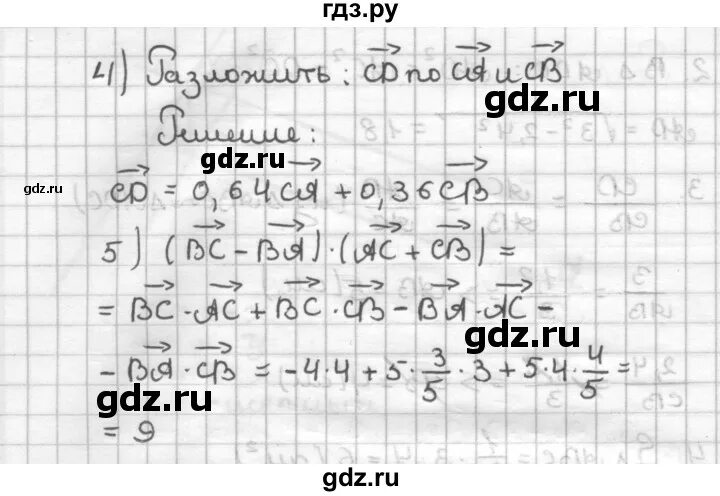 гдз.ру
4) Разложить: CD по CA и CB
Решение:
gdz.ru
gdz.ru
gdz.ru
CD = 0,64CA + 0,36CB
5) (BC - BA)·(AC + CB) =
= BC·AC + BC·CB - BA·AC -
gdz.ru
- BA·CB = -4·4 + 5·3/5·3 + 5·4·4/5 =
gdz.ru
gdz.ru
= 9
gdz.ru